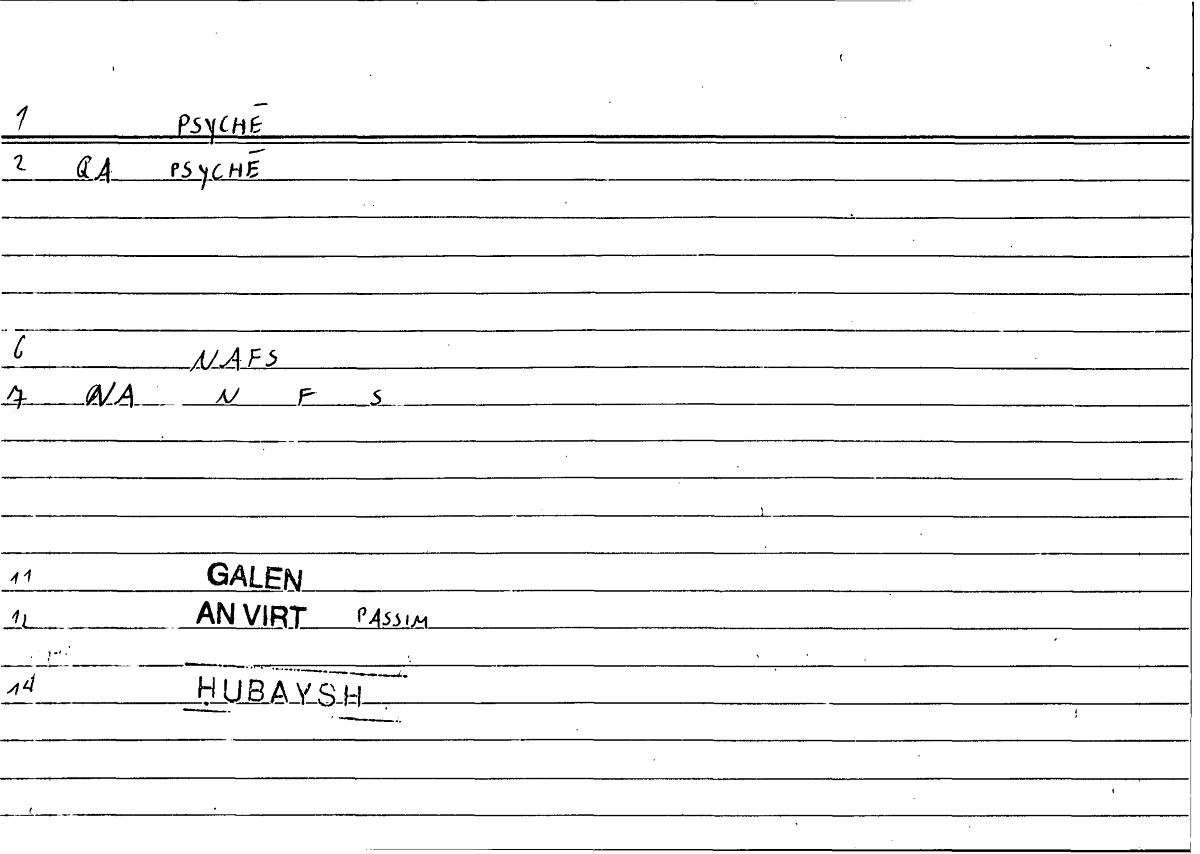 1 PSYCHĒ
2 QA PSYCHĒ
6 NAFS
7 NA N F S
11 GALEN
12 AN VIRT PASSIM
14 ḤUBAYSH